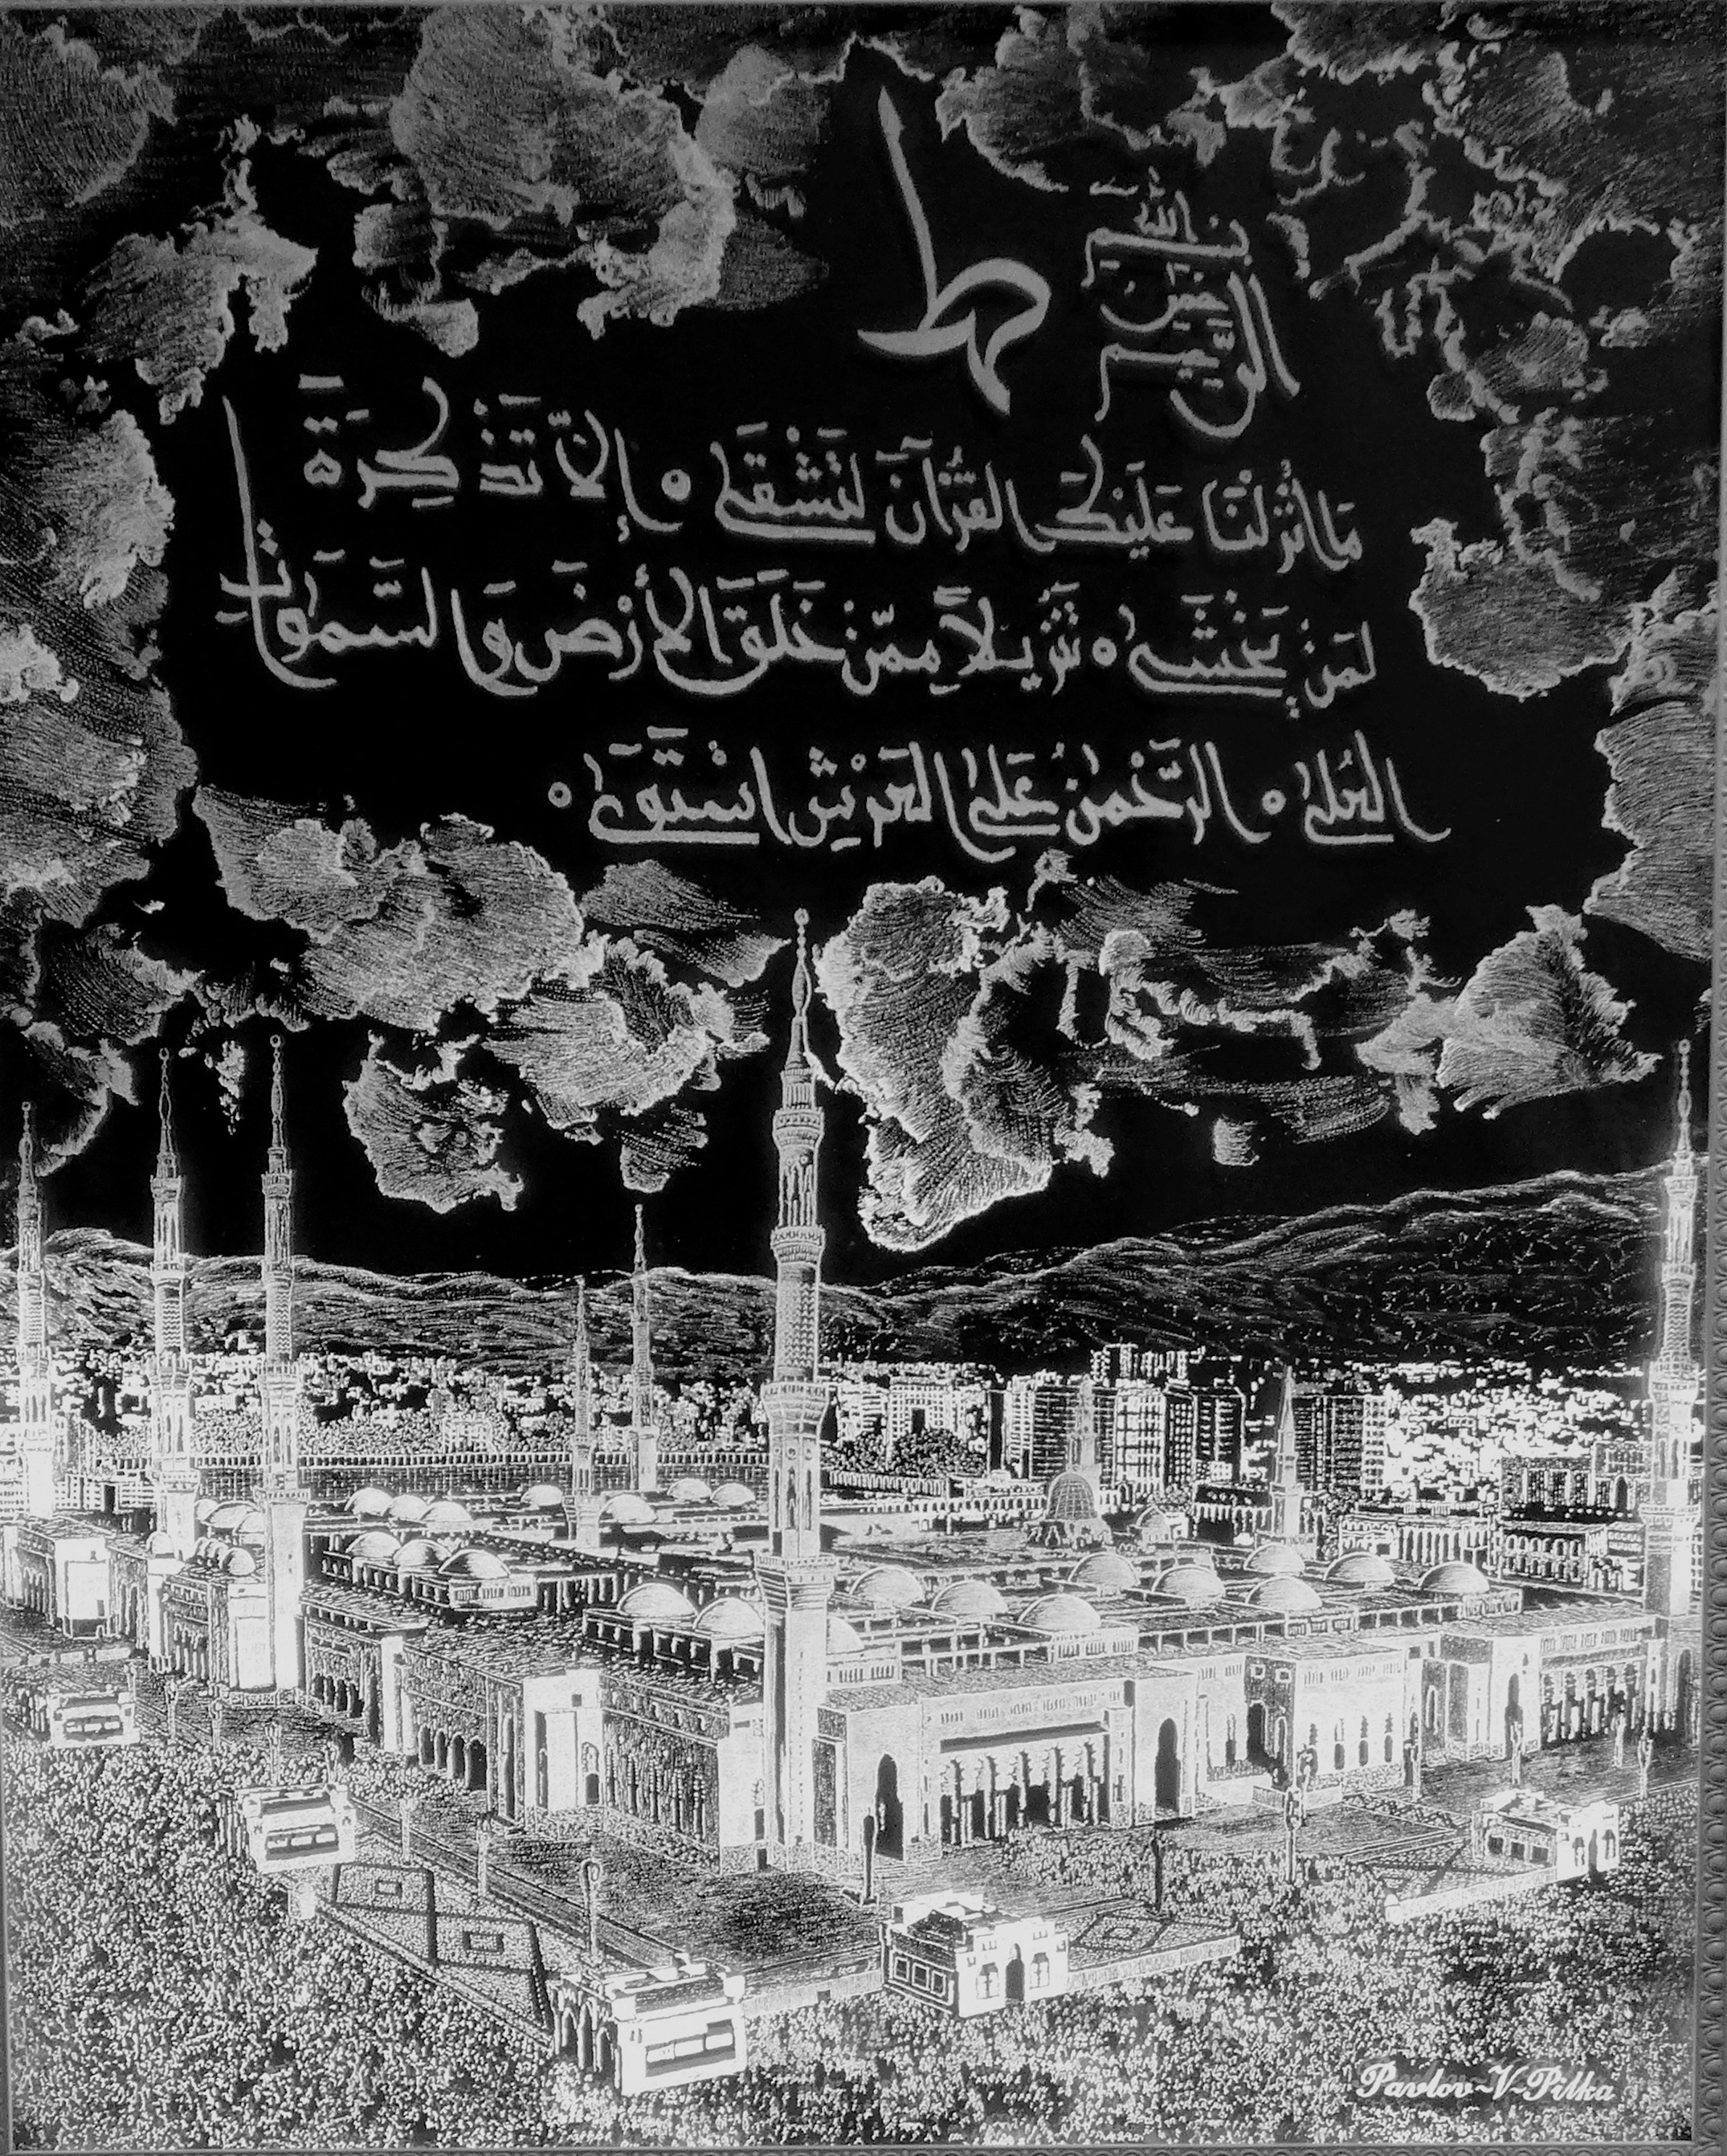 بسم الله
الرحمن
الرحيم
طه
مَا أَنْزَلْنَا عَلَيْكَ الْقُرْآنَ لِتَشْقَىٰ ٥ إِلَّا تَذْكِرَةً
لِمَنْ يَخْشَىٰ ٥ تَنْزِيلاً مِمَّنْ خَلَقَ الْأَرْضَ وَالسَّمَوَاتِ
الْعُلَىٰ ٥ الرَّحْمٰنُ عَلَى الْعَرْشِ اسْتَوَىٰ ٥
Pavlov-V-Pilka